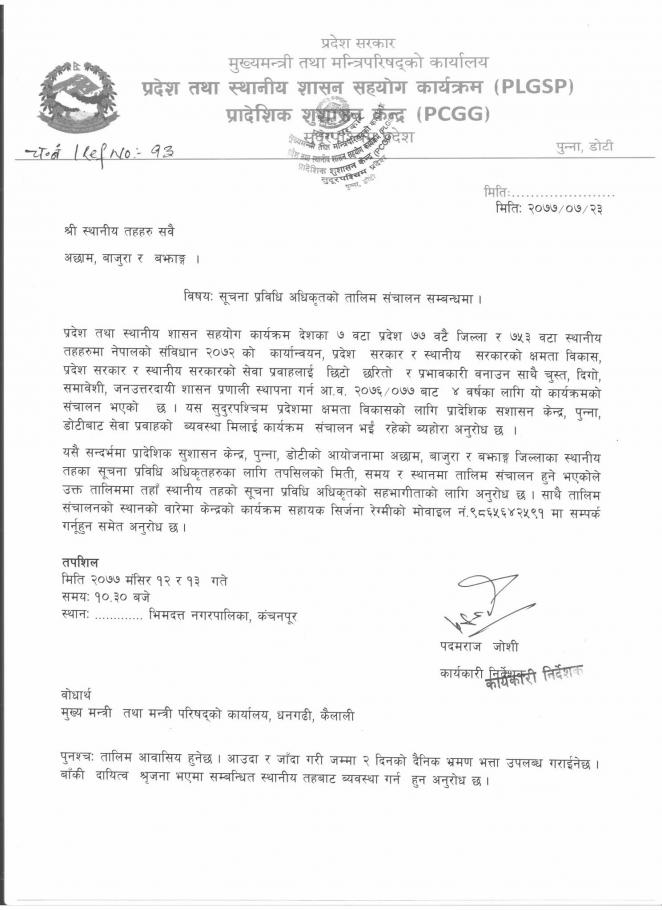 प्रदेश सरकार
मुख्यमन्त्री तथा मन्त्रिपरिषद्को कार्यालय
प्रदेश तथा स्थानीय शासन सहयोग कार्यक्रम (PLGSP)
प्रादेशिक सुशासन केन्द्र (PCGG)
सुदुरपश्चिम प्रदेश
पुन्ना, डोटी
च.नं /Ref No:- १३
मुख्यमन्त्री तथा मन्त्रिपरिषद्को कार्यालय
प्रदेश तथा स्थानीय शासन सहयोग कार्यक्रम (PLGSP)
प्रादेशिक शुशासन केन्द्र (PCGG)
सुदुरपश्चिम प्रदेश
पुन्ना, डोटी
मितिः......................
मितिः २०७७/०७/२३
श्री स्थानीय तहहरु सवै
अछाम, बाजुरा र बझाङ्ग ।
विषयः सूचना प्रविधि अधिकृतको तालिम संचालन सम्बन्धमा ।
प्रदेश तथा स्थानीय शासन सहयोग कार्यक्रम देशका ७ वटा प्रदेश ७७ वटै जिल्ला र ७५३ वटा स्थानीय
तहहरुमा नेपालको संविधान २०७२ को कार्यान्वयन, प्रदेश सरकार र स्थानीय सरकारको क्षमता विकास,
प्रदेश सरकार र स्थानीय सरकारको सेवा प्रवाहलाई छिटो छरितो र प्रभावकारी वनाउन साथै चुस्त, दिगो,
समावेशी, जनउत्तरदायी शासन प्रणाली स्थापना गर्न आ.व. २०७६/०७७ बाट ४ वर्षका लागि यो कार्यक्रमको
संचालन भएको छ । यस सुदुरपश्चिम प्रदेशमा क्षमता विकासको लागि प्रादेशिक सशासन केन्द्र, पुन्ना,
डोटीबाट सेवा प्रवाहको व्यवस्था मिलाई कार्यक्रम संचालन भईं रहेको व्यहोरा अनुरोध छ ।
यसै सन्दर्भमा प्रादेशिक सुशासन केन्द्र, पुन्ना, डोटीको आयोजनामा अछाम, बाजुरा र बझाङ्ग जिल्लाका स्थानीय
तहका सूचना प्रविधि अधिकृतहरुका लागि तपसिलको मिती, समय र स्थानमा तालिम संचालन हुने भएकोले
उक्त तालिममा तहाँ स्थानीय तहको सूचना प्रविधि अधिकृतको सहभागीताको लागि अनुरोध छ । साथै तालिम
संचालनको स्थानको वारेमा केन्द्रको कार्यक्रम सहायक सिर्जना रेग्मीको मोवाइल नं.९८६५६४२५९१ मा सम्पर्क
गर्नूहुन समेत अनुरोध छ ।
तपशिल
मिति २०७७ मंसिर १२ र १३ गते
समयः १०.३० बजे
स्थानः ............. भिमदत्त नगरपालिका, कंचनपूर
पदमराज जोशी
कार्यकारी निर्देशक
कार्यकारी निर्देशक
वोधार्थ
मुख्य मन्त्री तथा मन्त्री परिषद्को कार्यालय, धनगढी, कैलाली
पुनश्चः तालिम आवासिय हुनेछ । आउदा र जाँदा गरी जम्मा २ दिनको दैनिक भ्रमण भत्ता उपलब्ध गराईनेछ ।
बाँकी दायित्व श्रृजना भएमा सम्बन्धित स्थानीय तहबाट ब्यवस्था गर्न हुन अनुरोध छ ।